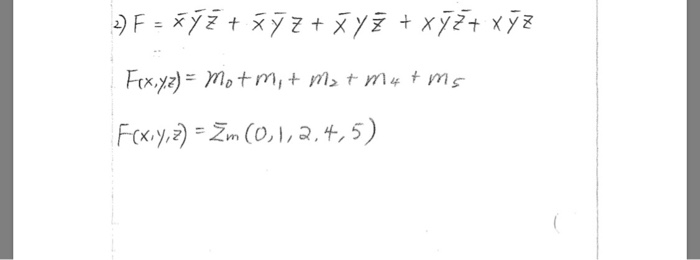 2) F = x̄ ȳ z̄ + x̄ ȳ z + x̄ y z̄ + x ȳ z̄ + x ȳ z
F(x,y,z) = m₀ + m₁ + m₂ + m₄ + m₅
F(x,y,z) = Σm (0,1,2,4,5)